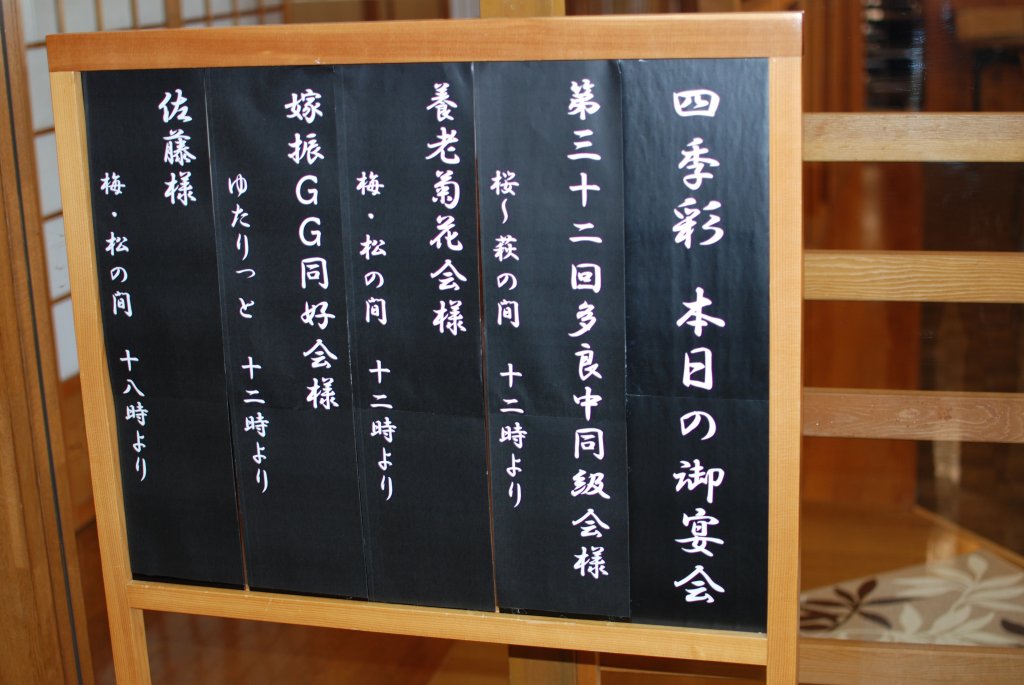 四季彩 本日の御宴会
第三十二回多良中同級会様
桜～萩の間 十二時より
養老菊花会様
梅・松の間 十二時より
嫁振GG同好会様
ゆたりっと 十二時より
佐藤様
梅・松の間 十八時より